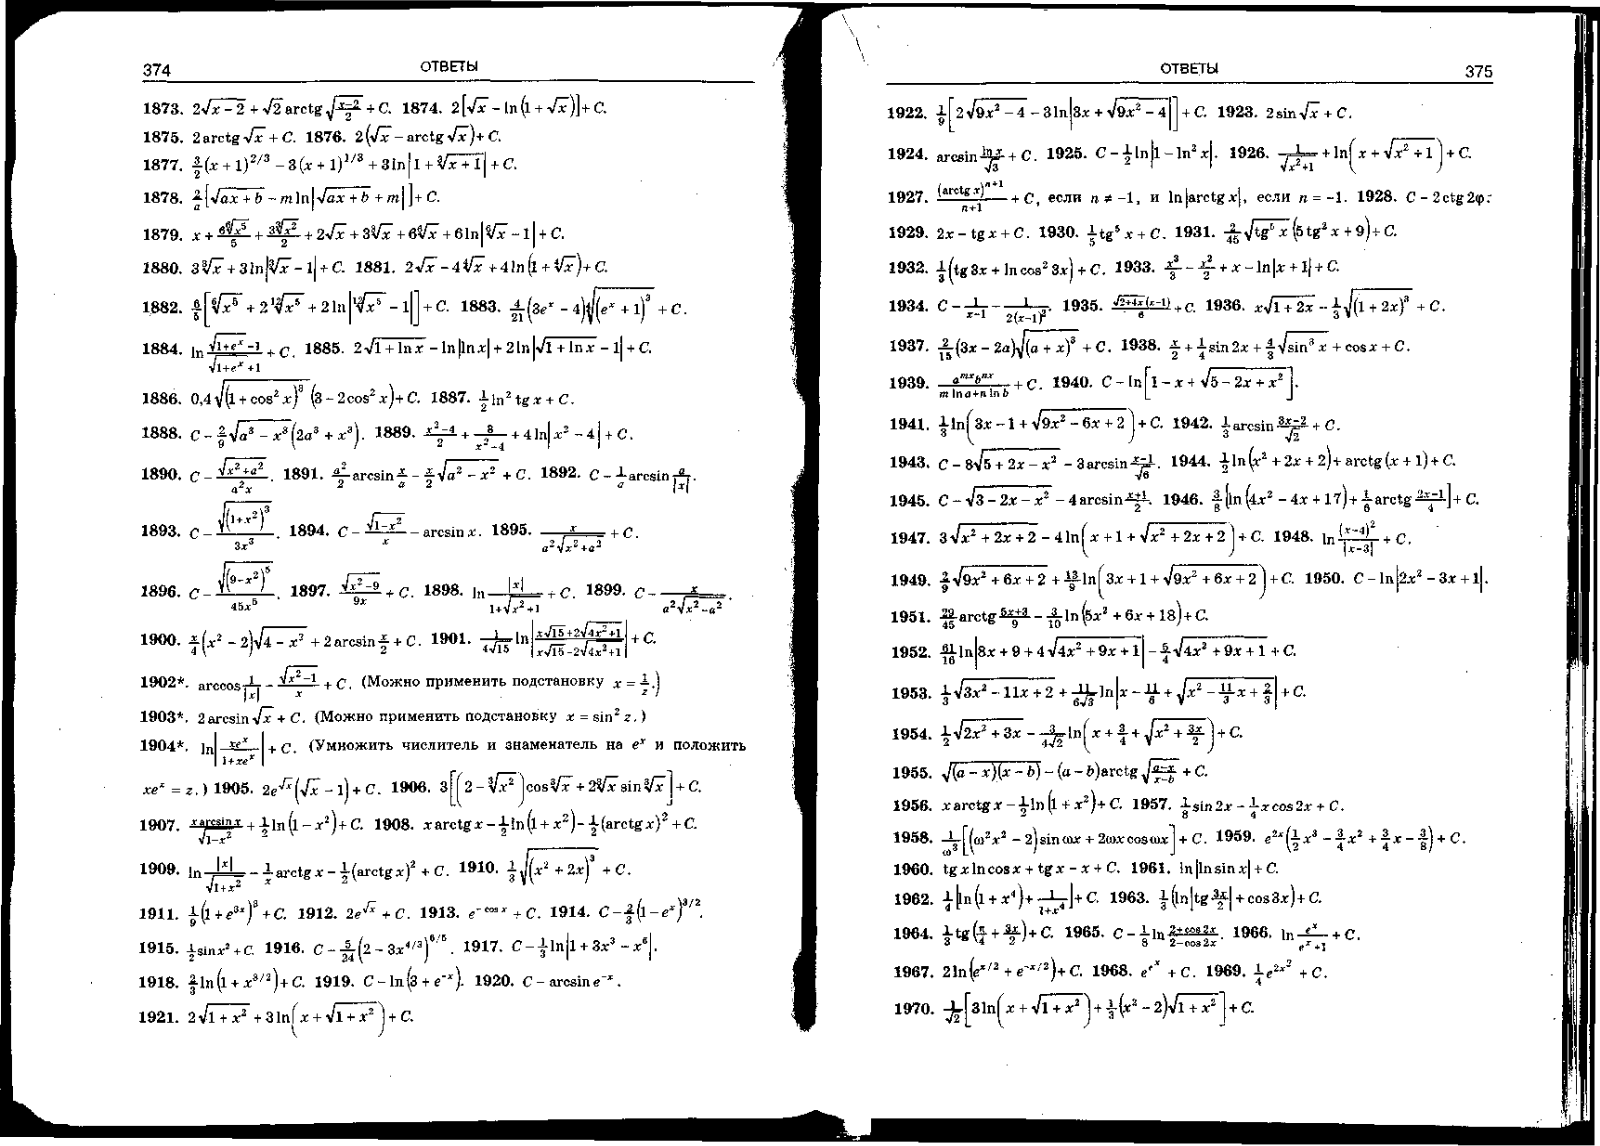 374 ОТВЕТЫ
1873. 2√(x−2) + √2 arctg √((x−2)/2) + C. 1874. 2[√x − ln(1 + √x)] + C.
1875. 2arctg √x + C. 1876. 2(√x − arctg √x) + C.
1877. 3/2 (x + 1)^{2/3} − 3(x + 1)^{1/3} + 3ln|1 + ∛(x + 1)| + C.
1878. 2/a [√(ax + b) − m ln|√(ax + b) + m|] + C.
1879. x + 6⁶√(x⁵)/5 + 3∛(x²)/2 + 2√x + 3∛x + 6⁶√x + 6ln|⁶√x − 1| + C.
1880. 3∛x + 3ln|∛x − 1| + C. 1881. 2√x − 4⁴√x + 4ln(1 + ⁴√x) + C.
1882. 6/5 [⁶√(x⁵) + 2¹²√(x⁵) + 2ln|¹²√(x⁵) − 1|] + C. 1883. 4/21 (3eˣ − 4)⁴√((eˣ + 1)³) + C.
1884. ln (√(1+eˣ) −1)/(√(1+eˣ) +1) + C. 1885. 2√(1 + ln x) − ln|ln x| + 2ln|√(1 + ln x) − 1| + C.
1886. 0,4√((1 + cos² x)³) (3 − 2cos² x) + C. 1887. 1/2 ln² tg x + C.
1888. C − 2/9 √(a³ − x³)(2a³ + x³). 1889. (x²−4)/2 + 8/(x²−4) + 4ln|x² − 4| + C.
1890. C − √(x²+a²)/(a²x). 1891. a²/2 arcsin x/a − x/2 √(a² − x²) + C. 1892. C − 1/a arcsin a/|x|.
1893. C − √((1+x²)³)/(3x³). 1894. C − √(1−x²)/x − arcsin x. 1895. x/(a²√(x²+a²)) + C.
1896. C − √((9−x²)⁵)/(45x⁵). 1897. √(x²−9)/(9x) + C. 1898. ln |x|/(1+√(x²+1)) + C. 1899. C − x/(a²√(x²−a²)).
1900. x/4 (x² − 2)√(4 − x²) + 2arcsin x/2 + C. 1901. 1/(4√15) ln|(x√15+2√(4x²+1))/(x√15−2√(4x²+1))| + C.
1902*. arccos 1/|x| − √(x²−1)/x + C. (Можно применить подстановку x = 1/z.)
1903*. 2arcsin √x + C. (Можно применить подстановку x = sin² z.)
1904*. ln|xeˣ/(1+xeˣ)| + C. (Умножить числитель и знаменатель на eˣ и положить
xeˣ = z.) 1905. 2e^{√x}(√x − 1) + C. 1906. 3[(2 − ∛(x²))cos ∛x + 2∛x sin ∛x] + C.
1907. x arcsin x/√(1−x²) + 1/2 ln(1 − x²) + C. 1908. x arctg x − 1/2 ln(1 + x²) − 1/2 (arctg x)² + C.
1909. ln |x|/√(1+x²) − 1/x arctg x − 1/2 (arctg x)² + C. 1910. 1/3 √((x² + 2x)³) + C.
1911. 1/9 (1 + e^{3x})³ + C. 1912. 2e^{√x} + C. 1913. e^{−cos x} + C. 1914. C − 2/3 (1 − eˣ)^{3/2}.
1915. 1/2 sin x² + C. 1916. C − 5/24 (2 − 3x^{4/3})^{6/5}. 1917. C − 1/3 ln|1 + 3x³ − x⁶|.
1918. 2/3 ln(1 + x^{3/2}) + C. 1919. C − ln(3 + e^{−x}). 1920. C − arcsin e^{−x}.
1921. 2√(1 + x²) + 3ln(x + √(1 + x²)) + C.
ОТВЕТЫ 375
1922. 1/9 [2√(9x² − 4) − 3ln|3x + √(9x² − 4)|] + C. 1923. 2sin √x + C.
1924. arcsin ln x/√3 + C. 1925. C − 1/2 ln|1 − ln² x|. 1926. 1/√(x²+1) + ln(x + √(x² + 1)) + C.
1927. (arctg x)^{n+1}/(n+1) + C, если n ≠ −1, и ln|arctg x|, если n = −1. 1928. C − 2ctg 2φ.
1929. 2x − tg x + C. 1930. 1/5 tg⁵ x + C. 1931. 2/45 √(tg⁵ x)(5tg² x + 9) + C.
1932. 1/3 (tg 3x + ln cos² 3x) + C. 1933. x³/3 − x²/2 + x − ln|x + 1| + C.
1934. C − 1/(x−1) − 1/(2(x−1)²). 1935. √(2+4x)(x−1)/6 + C. 1936. x√(1 + 2x) − 1/3 √((1 + 2x)³) + C.
1937. 2/15 (3x − 2a)√((a + x)³) + C. 1938. x/2 + 1/4 sin 2x + 4/3 √(sin³ x) + cos x + C.
1939. a^{mx}b^{nx}/(m ln a+n ln b) + C. 1940. C − ln[1 − x + √(5 − 2x + x²)].
1941. 1/3 ln(3x − 1 + √(9x² − 6x + 2)) + C. 1942. 1/3 arcsin (3x−2)/√2 + C.
1943. C − 8√(5 + 2x − x²) − 3arcsin (x−1)/√6. 1944. 1/2 ln(x² + 2x + 2) + arctg(x + 1) + C.
1945. C − √(3 − 2x − x²) − 4arcsin (x+1)/2. 1946. 3/8 [ln(4x² − 4x + 17) + 1/6 arctg (2x−1)/4] + C.
1947. 3√(x² + 2x + 2) − 4ln(x + 1 + √(x² + 2x + 2)) + C. 1948. ln (x−4)²/|x−3| + C.
1949. 2/9 √(9x² + 6x + 2) + 13/9 ln(3x + 1 + √(9x² + 6x + 2)) + C. 1950. C − ln|2x² − 3x + 1|.
1951. 29/45 arctg (5x+3)/9 − 3/10 ln(5x² + 6x + 18) + C.
1952. 61/16 ln|8x + 9 + 4√(4x² + 9x + 1)| − 5/4 √(4x² + 9x + 1) + C.
1953. 1/3 √(3x² − 11x + 2) + 11/(6√3) ln|x − 11/6 + √(x² − 11/3 x + 2/3)| + C.
1954. 1/2 √(2x² + 3x) − 3/(4√2) ln(x + 3/4 + √(x² + 3x/2)) + C.
1955. √((a − x)(x − b)) − (a − b)arctg √((a−x)/(x−b)) + C.
1956. x arctg x − 1/2 ln(1 + x²) + C. 1957. 1/8 sin 2x − 1/4 x cos 2x + C.
1958. 1/ω³ [(ω²x² − 2)sin ωx + 2ωx cos ωx] + C. 1959. e^{2x}(1/2 x³ − 3/4 x² + 3/4 x − 3/8) + C.
1960. tg x ln cos x + tg x − x + C. 1961. ln|ln sin x| + C.
1962. 1/4 [ln(1 + x⁴) + 1/(1+x⁴)] + C. 1963. 1/3 (ln|tg 3x/2| + cos 3x) + C.
1964. 1/3 tg(π/4 + 3x/2) + C. 1965. C − 1/8 ln (2+cos 2x)/(2−cos 2x). 1966. ln eˣ/(eˣ+1) + C.
1967. 2ln(e^{x/2} + e^{−x/2}) + C. 1968. e^{eˣ} + C. 1969. 1/4 e^{2x²} + C.
1970. 1/√2 [3ln(x + √(1 + x²)) + 1/3 (x² − 2)√(1 + x²)] + C.